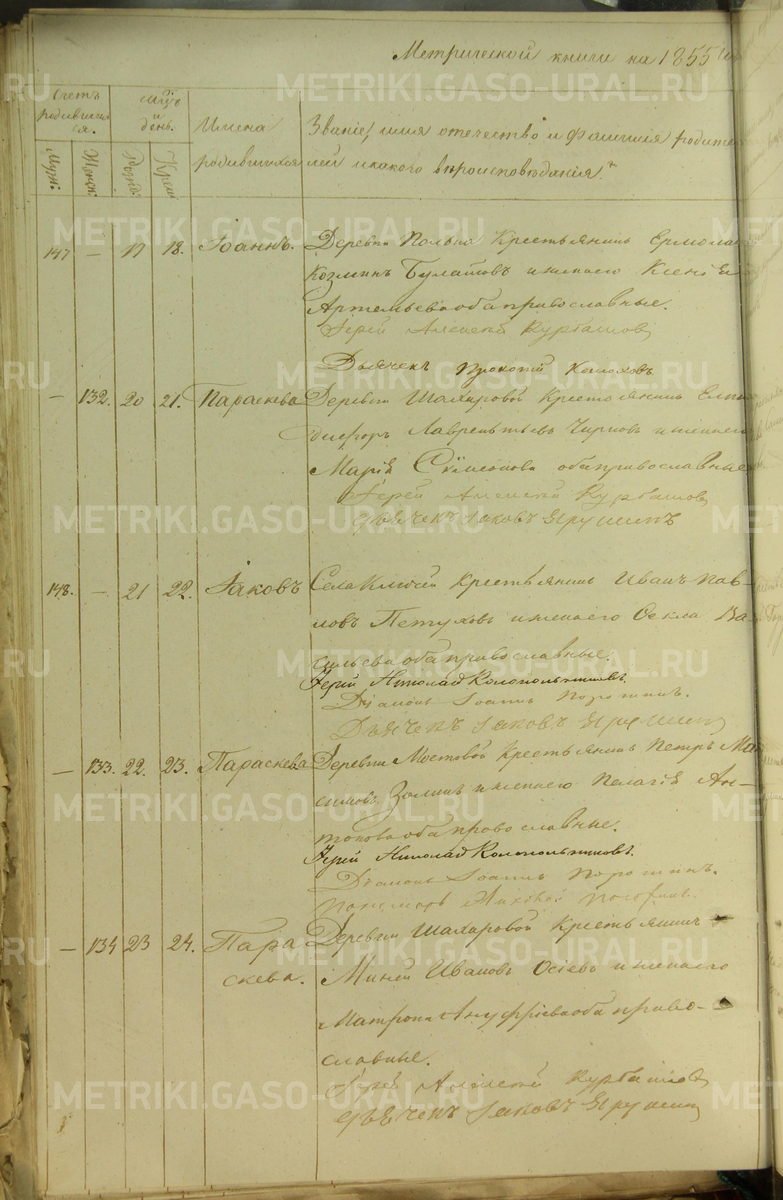 Метрической книги на 1855 год
Счетъ родившихся.
Муж:
Женск:
Мцъ и день.
Рожд:
Крещ:
Имена родившихся
Званіе, имя отечество и фамилія родите-
лей и какого вѣроисповѣданія.
147 — 17 18. Іоаннъ. Деревни Крестьянинъ Ермолай
Козминъ Булатовъ и жена его Ксенія
Артемьева оба православные.
Іерей Алексей Курбатовъ
Дьячекъ Прокопій
— 132. 20 21. Параскева Деревни Шамаровой Крестьянинъ Елпи-
дифоръ Лаврентьевъ Чирковъ и жена его
Марія Сѵмеонова оба православные
Іерей Алексей Курбатовъ
Дьячекъ Іаковъ Ярушинъ
148. — 21 22. Іаковъ Села Ключей крестьянинъ Иванъ Пав-
ловъ Петуховъ и жена его Ѳекла Ва-
сильева оба православные.
Іерей Николай Колокольниковъ.
Діаконъ Іоаннъ Поротинъ.
Дьячекъ Іаковъ Ярушинъ
— 133. 22. 23. Параскева Деревни Мостовой Крестьянинъ Петръ Мак-
симовъ Золинъ и жена его Пелагія Ан-
тонова оба православные.
Іерей Николай Колокольниковъ.
Діаконъ Іоаннъ Поротинъ.
Пономарь
— 134 23 24. Пара
скева. Деревни Шамаровой Крестьянинъ
Миней Ивановъ Осіевъ и жена его
Матрона Ануфріева оба право-
славные.
Іерей Алексей Курбатовъ
Дьячекъ Іаковъ Ярушинъ
METRIKI.GASO-URAL.RU